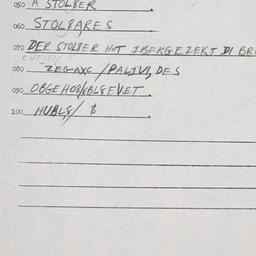 050 A STOLBER
060 STOLBARES
070 DER STOLBER HOT IBERGEZEKT DI BRI
080 ZEGAXC / PALIVI, DES
090 OBGEHOBLEVET
100 HUBLE/ $